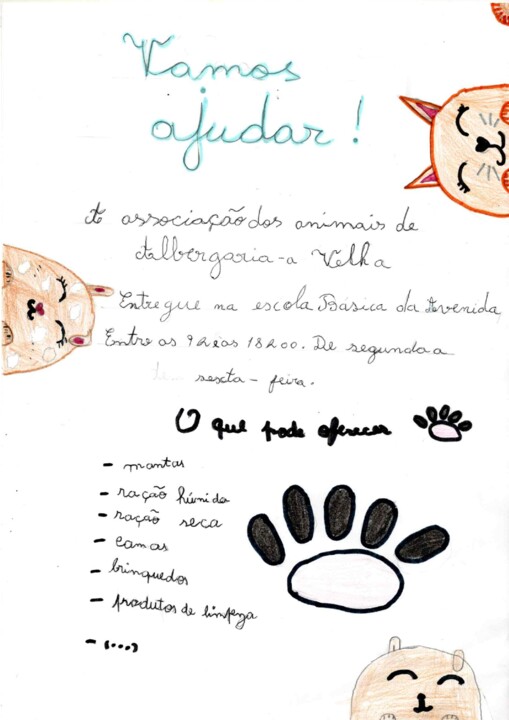 Vamos
ajudar!
A associação dos animais de
Albergaria-a Velha
Entregue na escola Básica da Avenida
Entre as 9h e as 18h00. De segunda a
sexta-feira.
O que pode oferecer
- mantas
- ração húmida
- ração seca
- camas
- brinquedos
- produtos de limpeza
- (...)